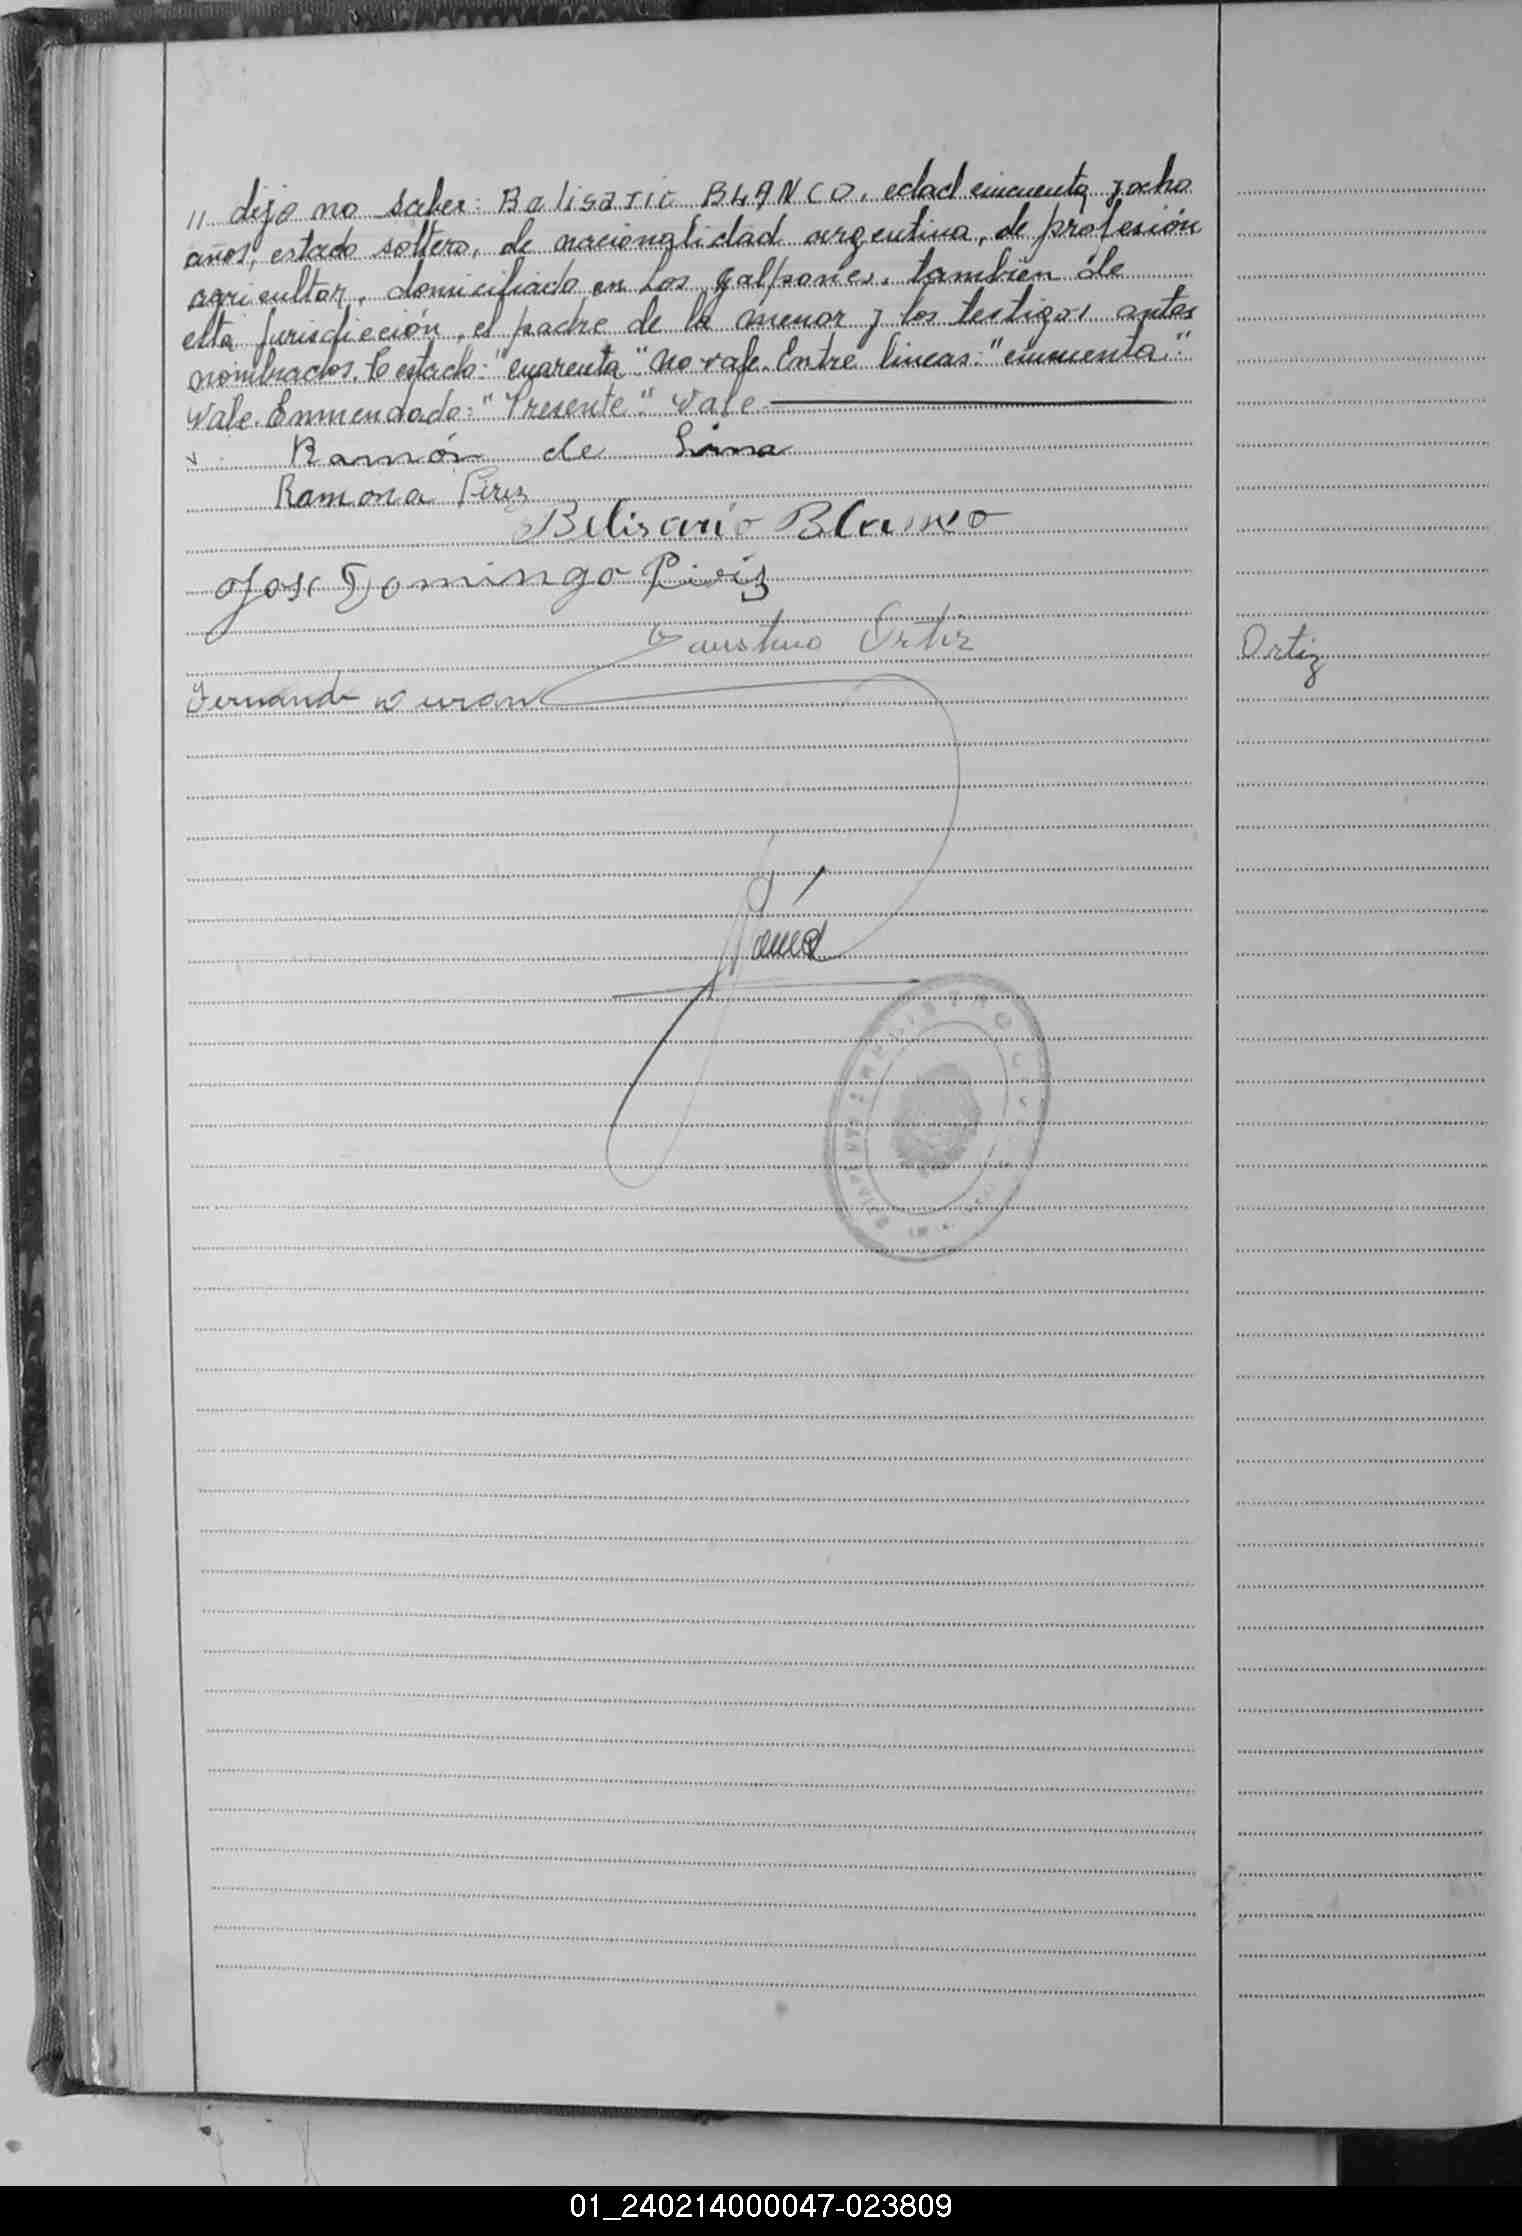 // dijo no saber: Balisario BLANCO, edad cincuenta y ocho
años, estado soltero, de nacionalidad argentina, de profesión
agricultor, domiciliado en Los Galpones, también de
esta jurisdicción, el padre de la menor y los testigos antes
nombrados. Testado: "cuarenta". No vale. Entre lineas: "cincuenta".
Vale. Enmendado: "Presente". Vale
Ramón de Lima
Ramona Piriz
Belisario Blanco
Jose Domingo Piriz
Faustino Ortiz
Ortiz
Fernando Duran
REGISTRO
01_240214000047-023809